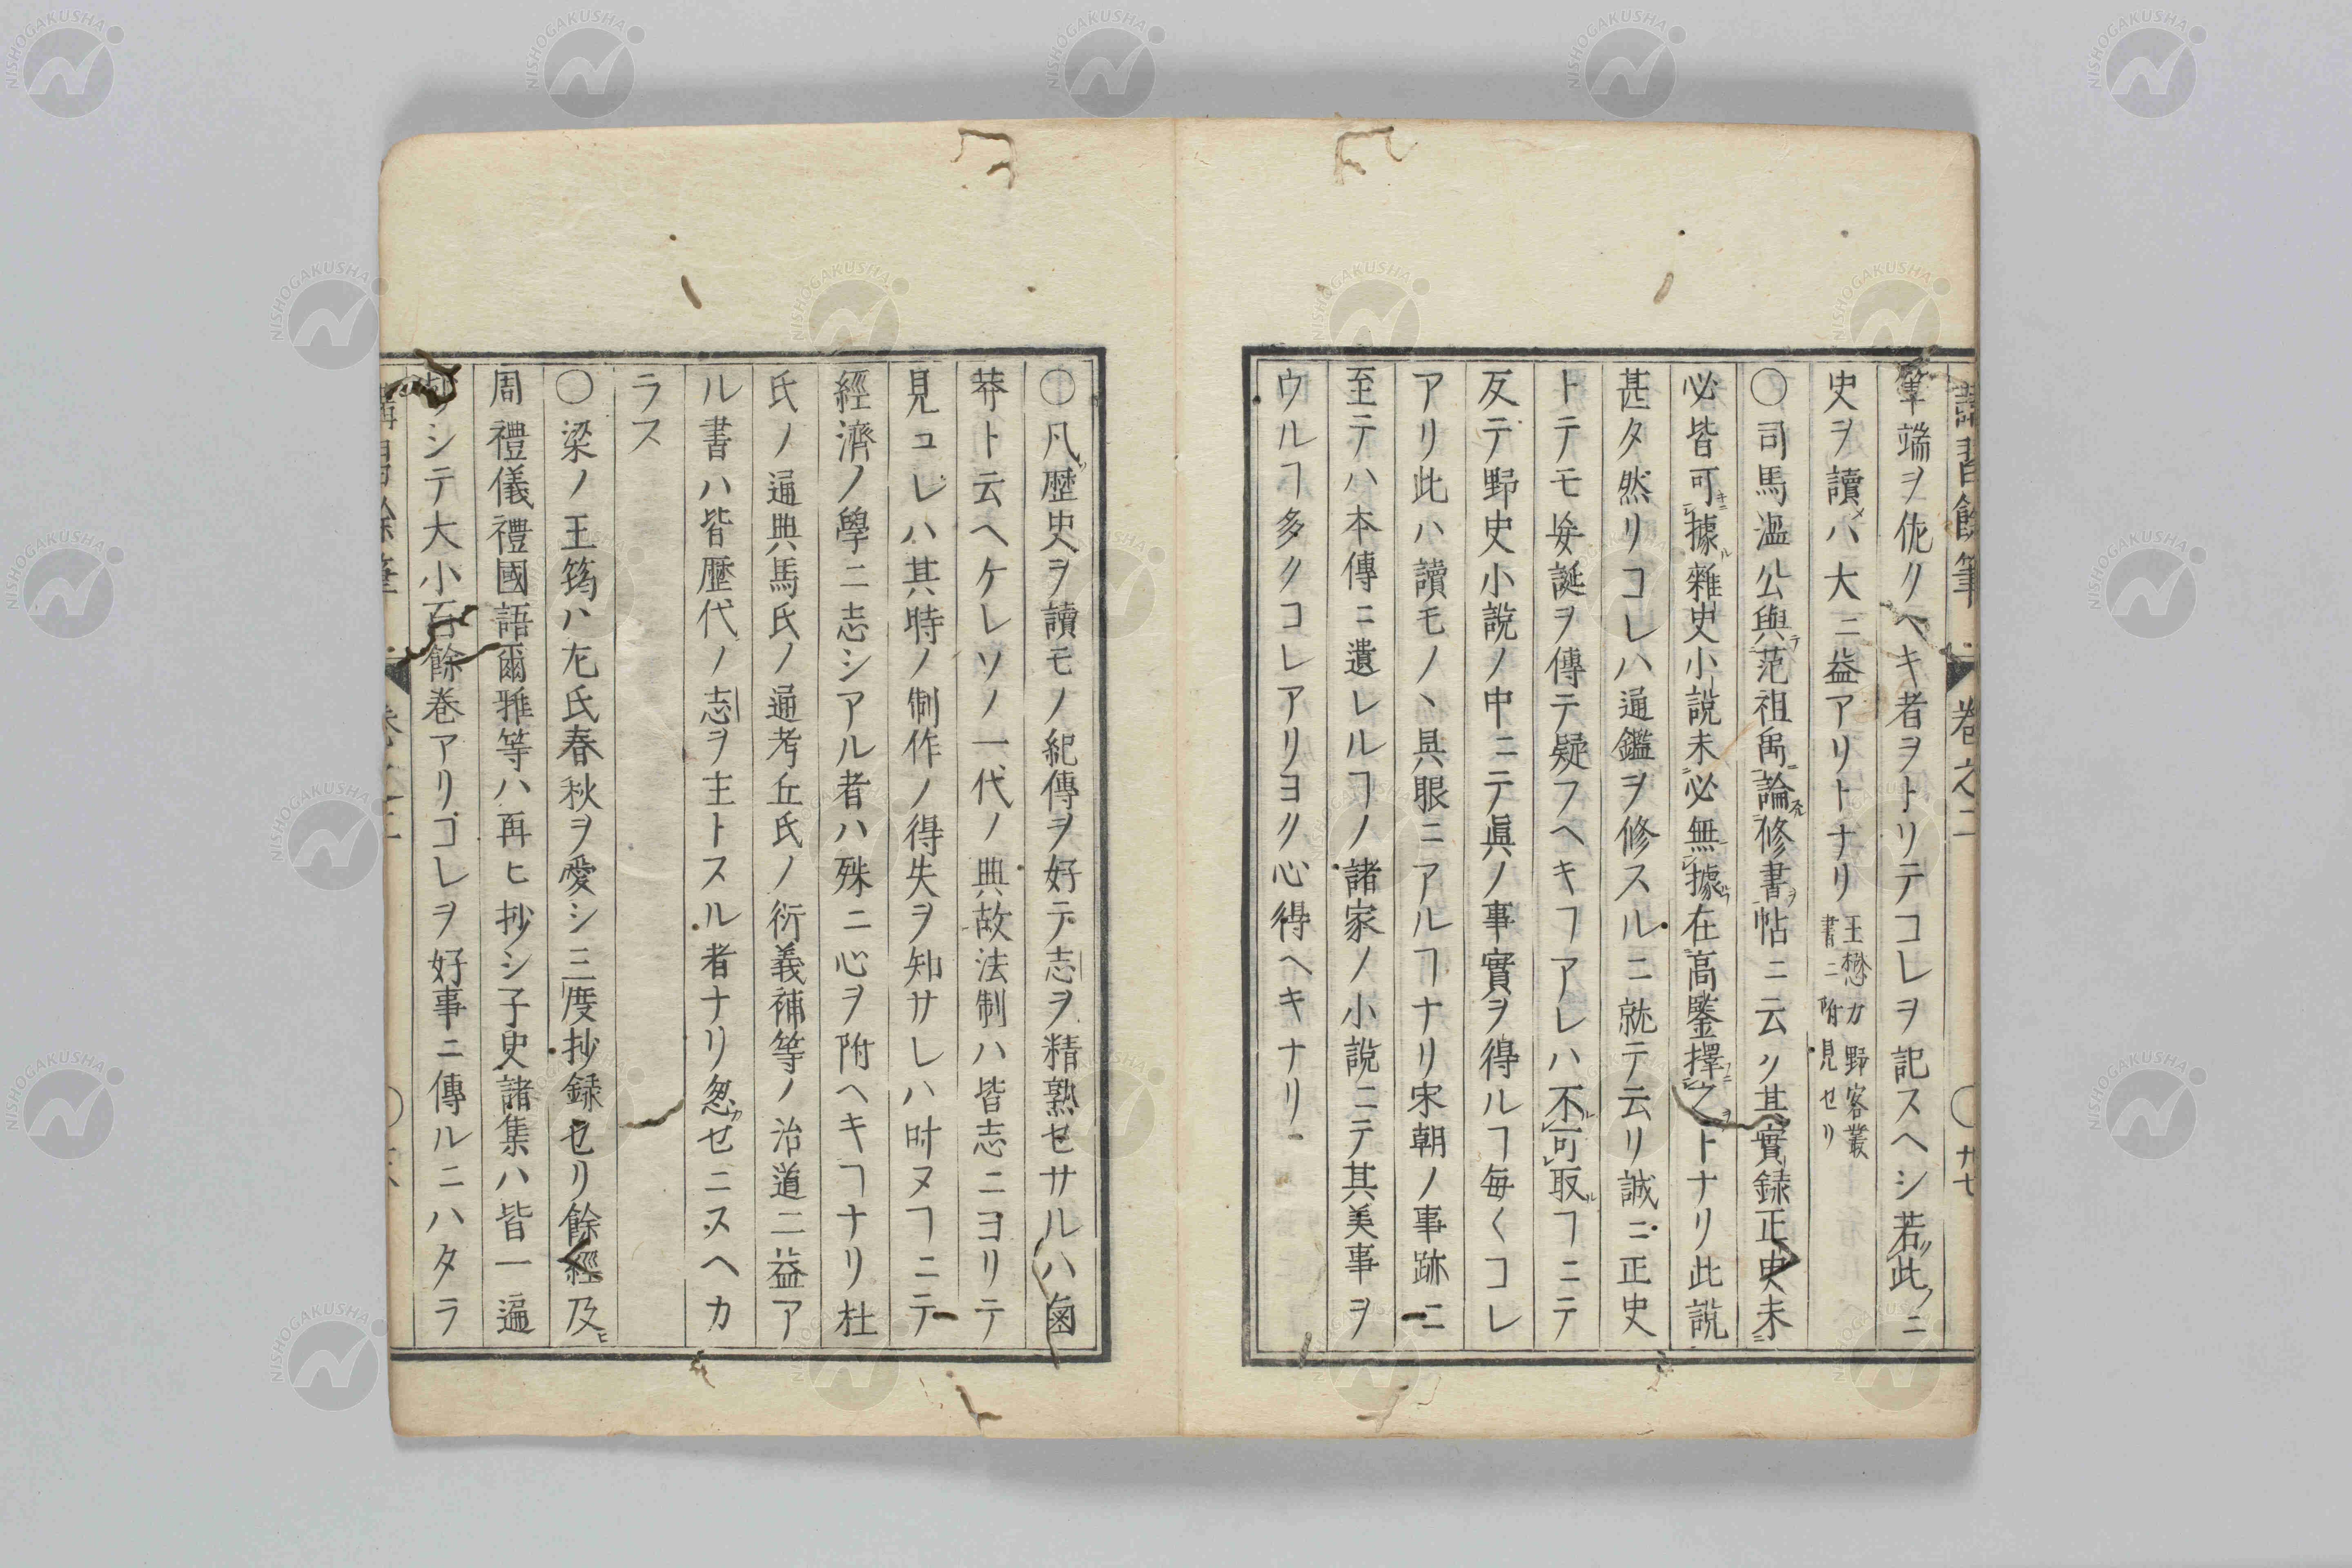 講習餘筆 卷之二 〇 廿七
筆端ヲ佐クヘキ者ヲトリテコレヲ記スヘシ若此ノニ
史ヲ讀メハ大ニ益アリトナリ王楙カ野客叢書ニ附見セリ
〇司馬溫公與范祖禹論修書帖ニ云ク其實録正史未
必皆可據雜史小說未必無據在高鑒擇之トナリ此說
甚タ然リコレハ通鑑ヲ修スルニ就テ云リ誠ニ正史
トテモ妄誕ヲ傳テ疑フヘキヿアレハ不可取ルヿニテ
反テ野史小說ノ中ニテ眞ノ事實ヲ得ルヿ每〱コレ
アリ此ハ讀モノヽ具眼ニアルヿナリ宋朝ノ事跡ニ
至テハ本傳ニ遺レルヿノ諸家ノ小說ニテ其美事ヲ
ウルヿ多クコレアリヨク心得ヘキナリ
〇凡ソ歷史ヲ讀モノ紀傳ヲ好テ志ヲ精熟セサルハ鹵
莽ト云ヘケレソノ一代ノ典故法制ハ皆志ニヨリテ
見ユレハ其時ノ制作ノ得失ヲ知サレハ叶ヌヿニテ
經濟ノ學ニ志シアル者ハ殊ニ心ヲ附ヘキヿナリ杜
氏ノ通典馬氏ノ通考丘氏ノ衍義補等ノ治道ニ益ア
ル書ハ皆歷代ノ志ヲ主トスル者ナリ忽セニスヘカ
ラス
〇梁ノ王筠ハ左氏春秋ヲ愛シ三度抄録セリ餘經及ヒ
周禮儀禮國語爾雅等ハ再ヒ抄シ子史諸集ハ皆一遍
シテ大小百餘卷アリコレヲ好事ニ傳ルニハタラ